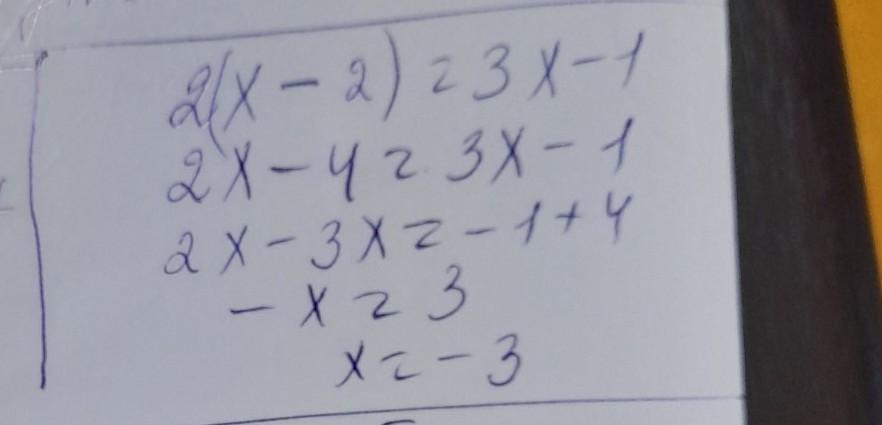 2(x-2)=3x-1
2x-4=3x-1
2x-3x=-1+4
-x=3
x=-3